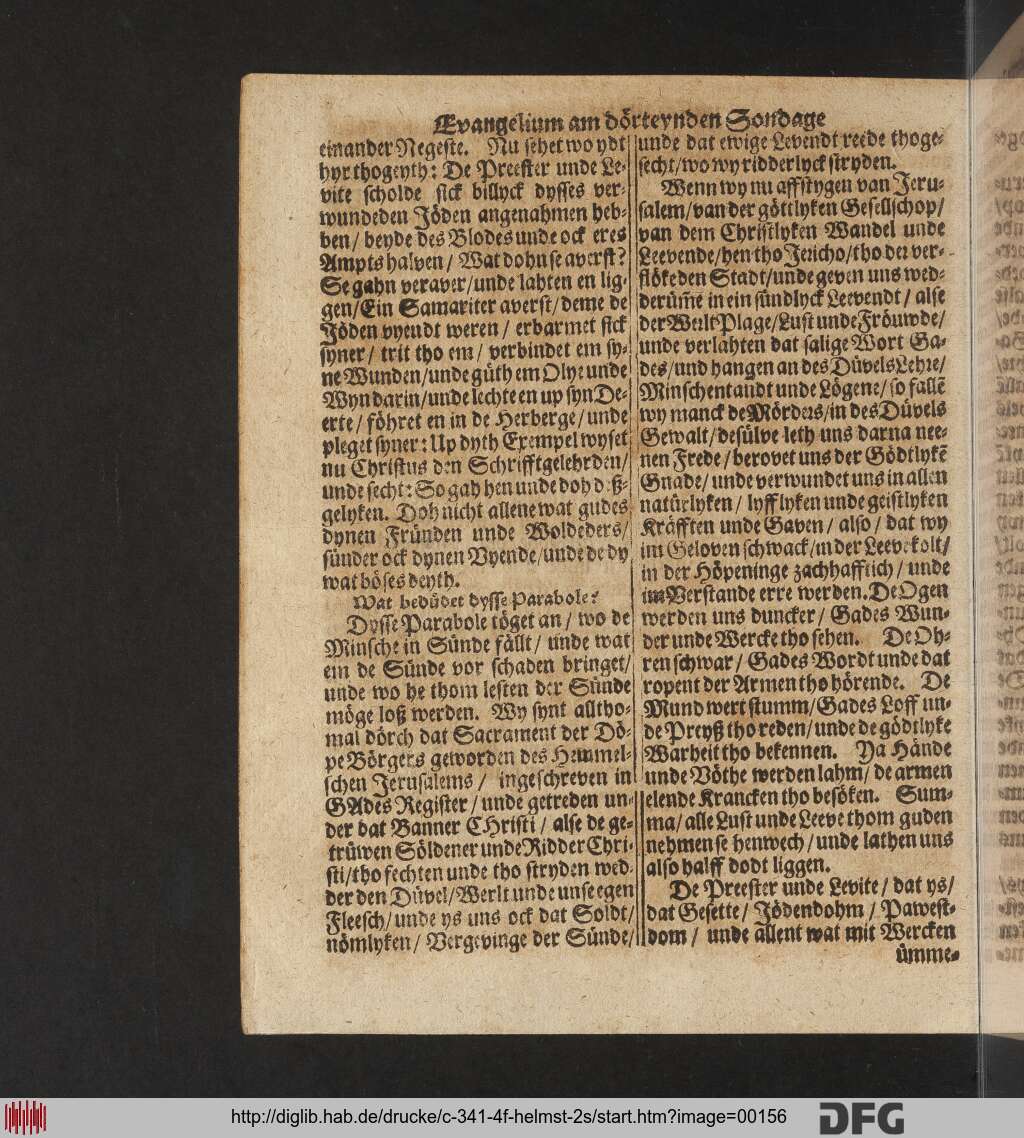 Evangelium am dörteynden Sondage
einander Negeste. Nu sehet wo ydt
hyr thogeyth: De Preester unde Le-
vite scholde sick billyck dysses ver-
wundeden Jöden angenahmen heb-
ben / beyde des Blodes unde ock eres
Ampts halven / Wat dohn se averst?
Se gahn veraver / unde lahten en lig-
gen / Ein Samariter averst / deme de
Jöden vyendt weren / erbarmet sick
syner / trit tho em / verbindet em sy-
ne Wunden / unde güth em Olye unde
Wyn darin / unde lechte en up syn De-
erte / föhret en in de Herberge / unde
pleget syner: Up dyth Exempel wyset
nu Christus den Schrifftgelehrden /
unde secht: So gah hen unde doh deß-
gelyken. Doh nicht allene wat gudes
dynen Fründen unde Woldeders /
sünder ock dynen Vyende / unde de dy
wat böses deyth.
Wat bedüdet dysse Parabole?
Dysse Parabole töget an / wo de
Minsche in Sünde fällt / unde wat
em de Sünde vor schaden bringet /
unde wo he thom lesten der Sünde
möge loß werden. Wy synt alltho-
mal dörch dat Sacrament der Dö-
pe Börgers geworden des Hemmel-
schen Jerusalems / ingeschreven in
GAdes Register / unde getreden un-
der dat Banner CHristi / alse de ge-
trüwen Söldener unde Ridder Chri-
sti / tho fechten unde tho stryden wed-
der den Düvel / Werlt unde unse egen
Fleesch / unde ys uns ock dat Soldt /
nömlyken / Vergevinge der Sünde /
unde dat ewige Levendt reede thoge-
secht / wo wy ridderlyck stryden.
Wenn wy nu affstygen van Jeru-
salem / van der göttlyken Gesellschop /
van dem Christlyken Wandel unde
Leevende / hen tho Jericho / tho der ver-
flökeden Stadt / unde geven uns wed-
derüm̃e in ein sündlyck Leevendt / alse
der Werlt Plage / Lust unde Fröuwde /
unde verlahten dat salige Wort Ga-
des / und hangen an des Düvels Lehre /
Minschentandt unde Lögene / so fallẽ
wy manck de Mörders / in des Düvels
Gewalt / desülve leth uns darna nee-
nen Frede / berovet uns der Gödtlykẽ
Gnade / unde verwundet uns in allen
natürlyken / lyfflyken unde geistlyken
Kräfften unde Gaven / also / dat wy
im Geloven schwack / in der Leeve kolt /
in der Höpeninge zachhafftich / unde
im Verstande erre werden. De Ogen
werden uns duncker / Gades Wun-
der unde Wercke tho sehen. De Oh-
ren schwar / Gades Wordt unde dat
ropent der Armen tho hörende. De
Mund wert stumm / Gades Loff un-
de Preyß tho reden / unde de gödtlyke
Warheit tho bekennen. Ya Hände
unde Vöthe werden lahm / de armen
elende Krancken tho besöken. Sum-
ma / alle Lust unde Leeve thom guden
nehmen se henwech / unde lathen uns
also halff dodt liggen.
De Preester unde Levite / dat ys /
dat Gesette / Jödendohm / Pawest-
dom / unde allent wat mit Wercken
ümme-
http://diglib.hab.de/drucke/c-341-4f-helmst-2s/start.htm?image=00156
DFG